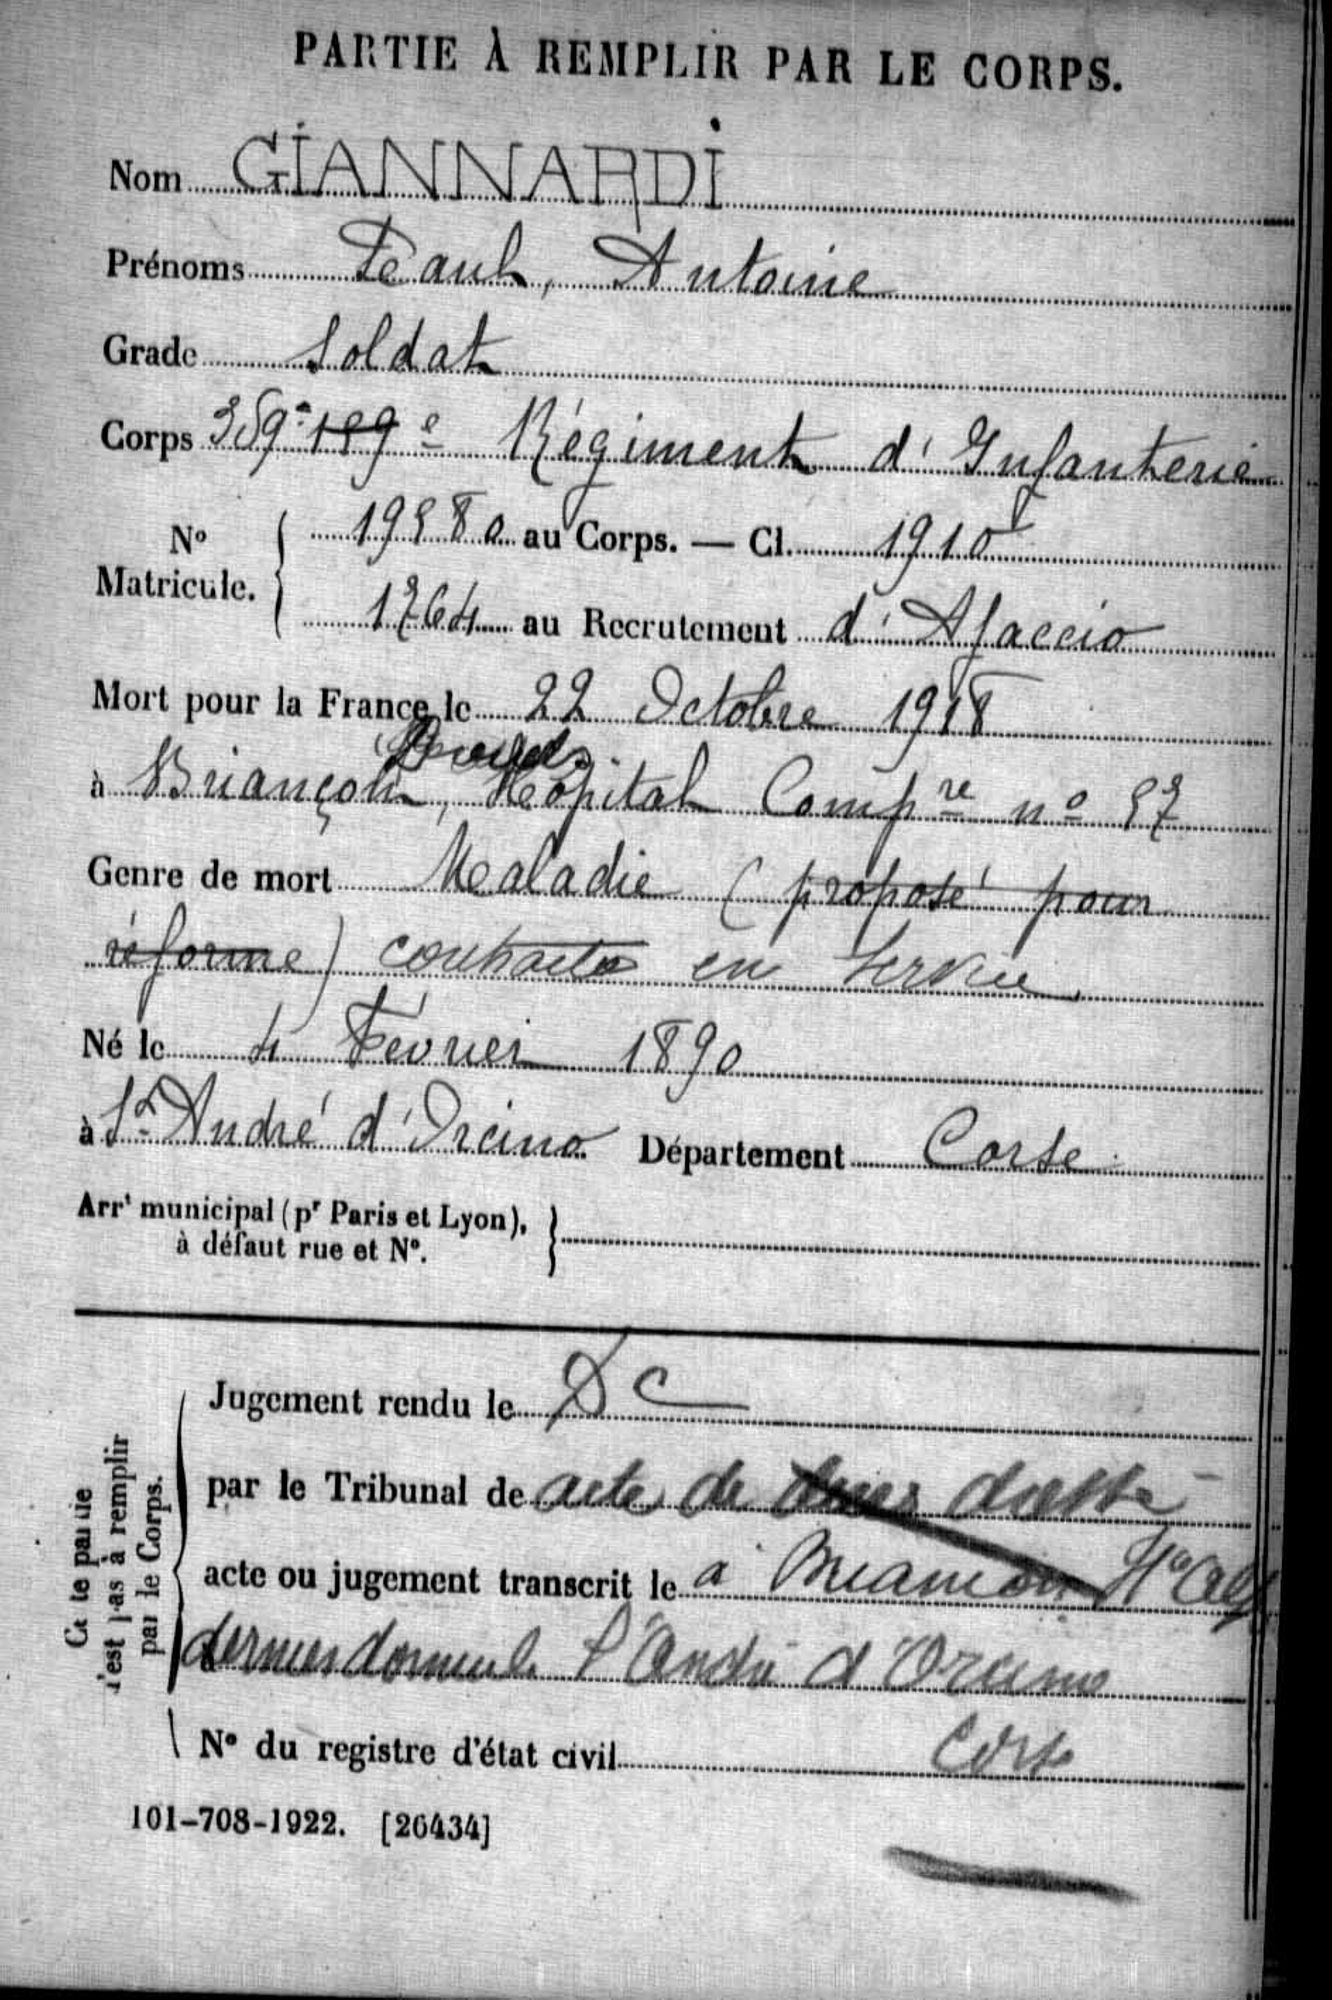 PARTIE À REMPLIR PAR LE CORPS.
Nom GIANNARDI
Prénoms Paul, Antoine
Grade Soldat
Corps 359e 159e Régiment d'Infanterie
No Matricule. 19580 au Corps. — Cl. 1910
1764 au Recrutement d'Ajaccio
Mort pour la France le 22 Octobre 1918
à Briançon, Hôpital Compre no 57
Genre de mort Maladie (proposé pour
réforme) contractée en service
Né le 4 Février 1890
à St André d'Orcino Département Corse
Arrt municipal (pr Paris et Lyon),
à défaut rue et No.
Jugement rendu le DC
par le Tribunal de acte de dressé
acte ou jugement transcrit le à Briançon Htes Alp
dernier domicile St André d'Orcino
Corse
No du registre d'état civil
Cette partie
n'est pas à remplir
par le Corps.
101-708-1922. [26434]